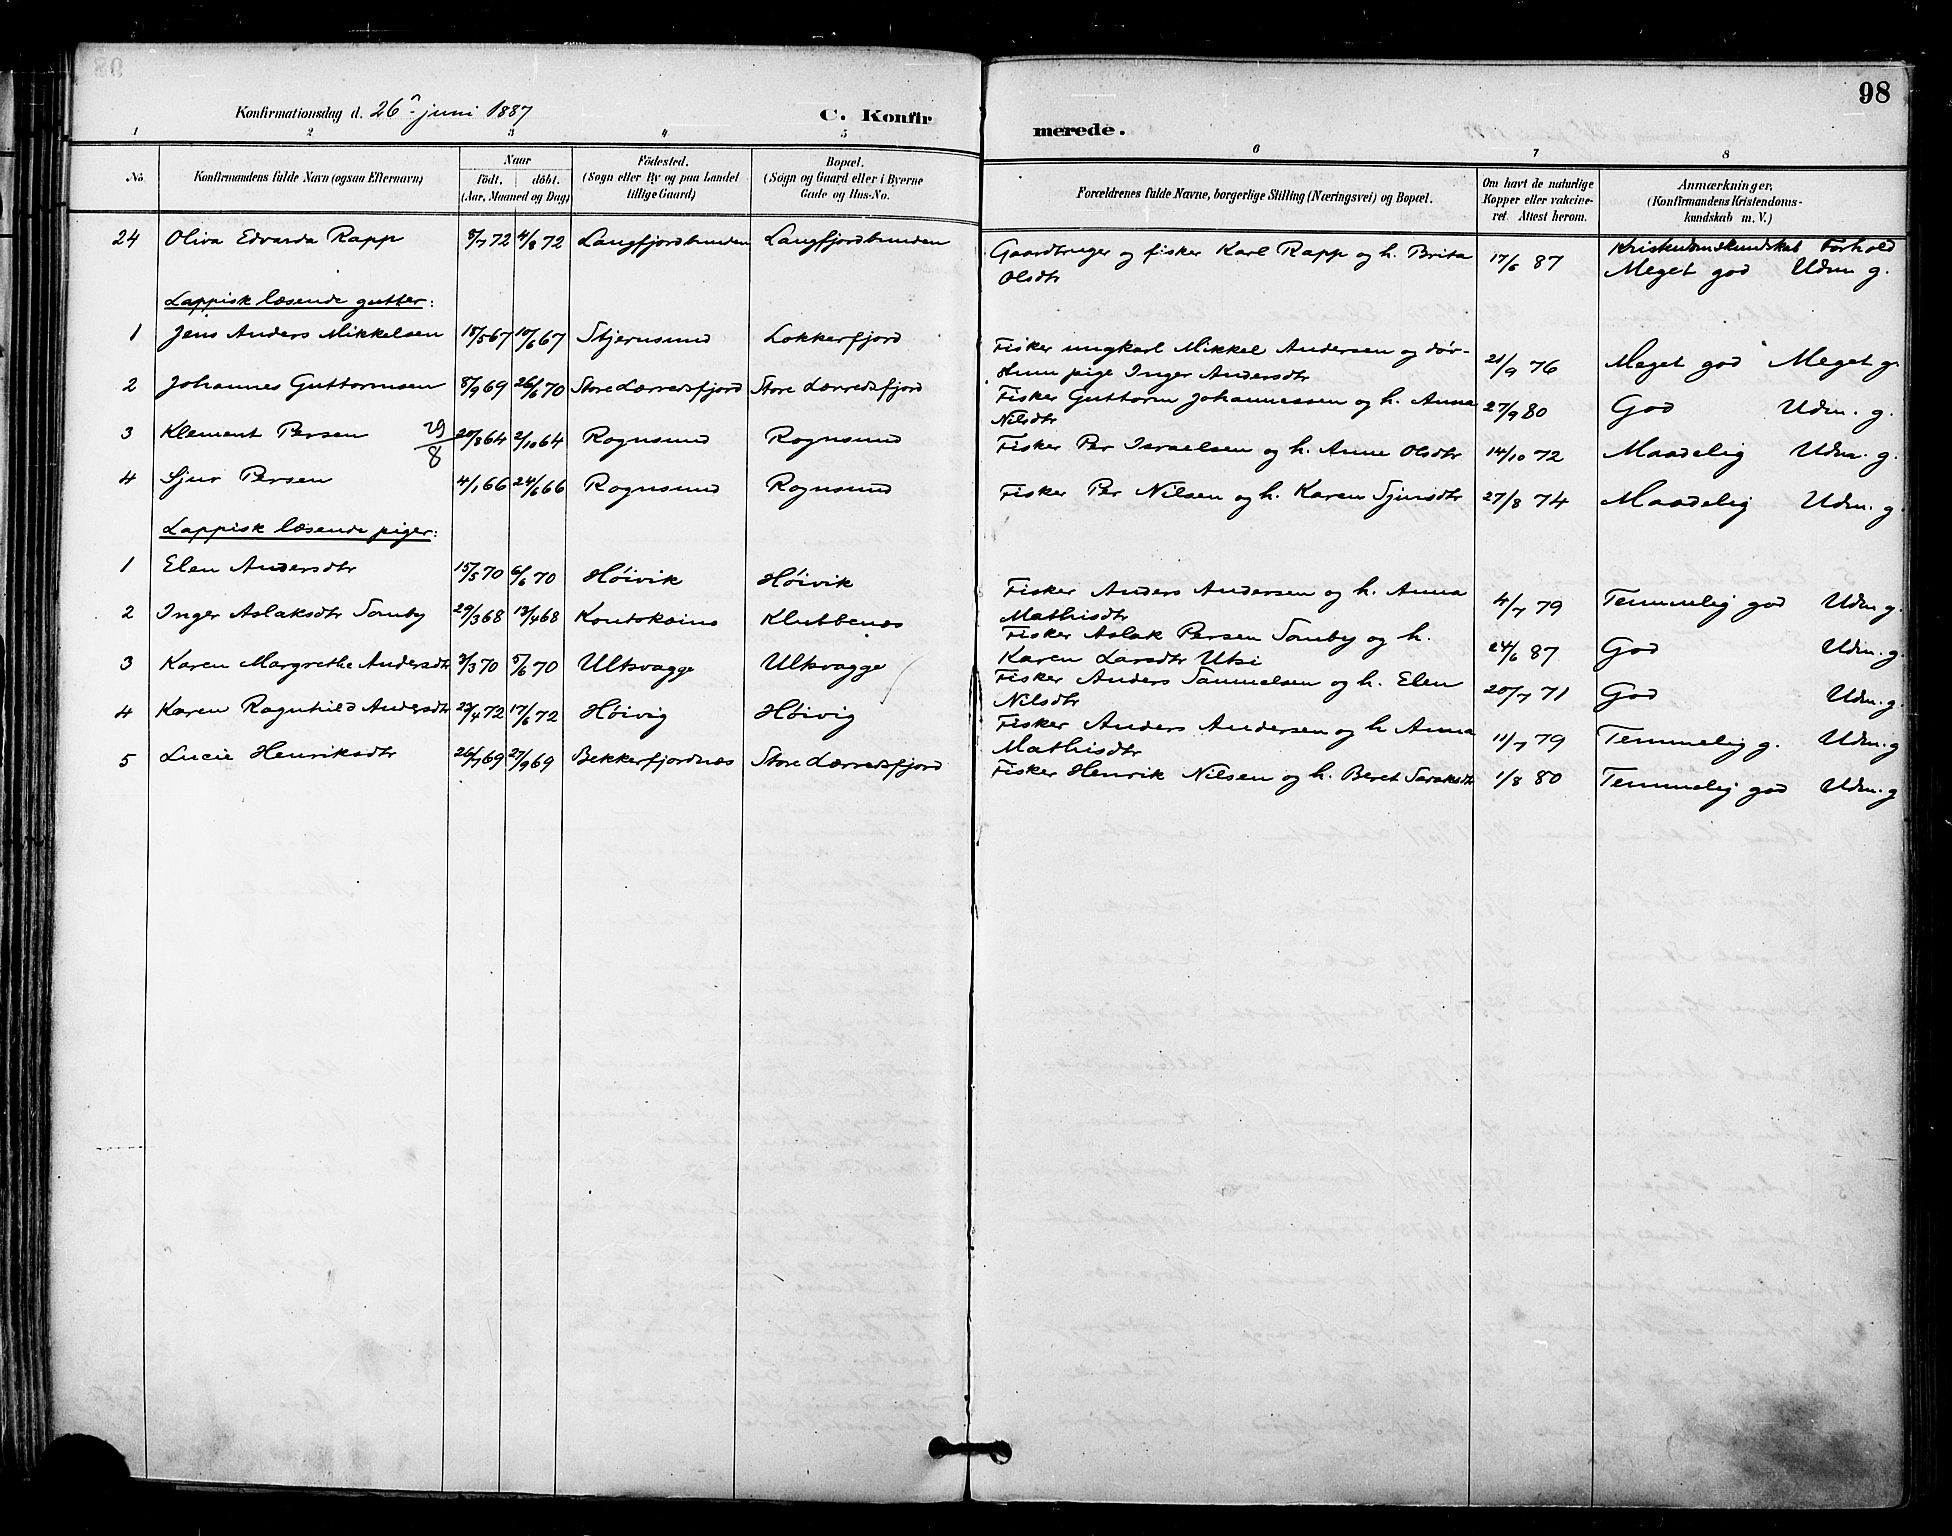 98
Konfirmationsdag d. 26n juni 1887 C. Konfirmerede.
1 2 3 4 5 6 7 8
No. Konfirmandens fulde Navn (ogsaa Efternavn) Naar födt. döbt. (Aar, Maaned og Dag) Födested. (Sogn eller By og paa Landet tillige Gaard) Bopæl. (Sogn og Gaard eller i Byerne Gade og Hus-No. Forældrenes fulde Navne, borgerlige Stilling (Næringsvei) og Bopæl. Om havt de naturlige Kopper eller vakcineret. Attest herom. Anmærkninger, (Konfirmandens Kristendomskundskab m. V.)
Kristendomskundskab Forhold
24 Oliva Edvarda Rapp 8/7 72 4/8 72 Langfjordbunden Langfjordbunden Gaardbruger og fisker Karl Rapp og h. Brita Olsdtr 17/6 87 Meget god Udm g.
Lappisk læsende gutter:
1 Jens Anders Mikkelsen 18/5 67 10/6 67 Stjernsund Lokkerfjord Fisker ungkarl Mikkel Andersen og dør- Hun pige Inger Andersdtr 21/9 76 Meget god Meget g.
2 Johannes Guttormsen 8/9 69 26/6 70 Store Lærredsfjord Store Lærredsfjord Fisker Guttorm Johannessen og h. Anna Nilsdtr 27/9 80 God Udm. g.
3 Klement Persen 29/8 20/8 64 2/10 64 Rognsund Rognsund Fisker Per Israelsen og h. Anne Olsdtr 14/10 72 Maadelig Udm. g.
4 Sjur Persen 4/1 66 24/6 66 Rognsund Rognsund Fisker Per Nilsen og h. Karen Sjursdtr 27/8 74 Maadelig Udm. g.
Lappisk læsende piger:
1 Elen Andersdtr 15/5 70 6/6 70 Høivik Høivik Fisker Anders Andersen og h. Anna Mathisdtr 4/7 79 Temmelig god Udm g.
2 Inger Aslaksdtr Somby 29/3 68 13/4 68 Koutokæino Klubbenæs Fisker Aslak Persen Somby og h. Karen Larsdtr Utsi 24/6 87 God Udm. g.
3 Karen Margrethe Andersdtr 3/3 70 5/6 70 Ultsvagge Ulkvagge Fisker Anders Samuelsen og h. Elen Nilsdtr 20/7 71 God Udm. g.
4 Karen Ragnhild Andersdtr 22/4 72 17/6 72 Høivig Høivig Fisker Anders Andersen og h Anna Mathisdtr 11/7 79 Temmelig g. Udm. g
5 Lucie Henriksdtr 26/7 69 27/9 69 Bekkerfjordnæs Store Lærredsfjord Fisker Henrik Nilsen og h. Beret Saraksdtr 1/8 80 Temmelig god Udm. g